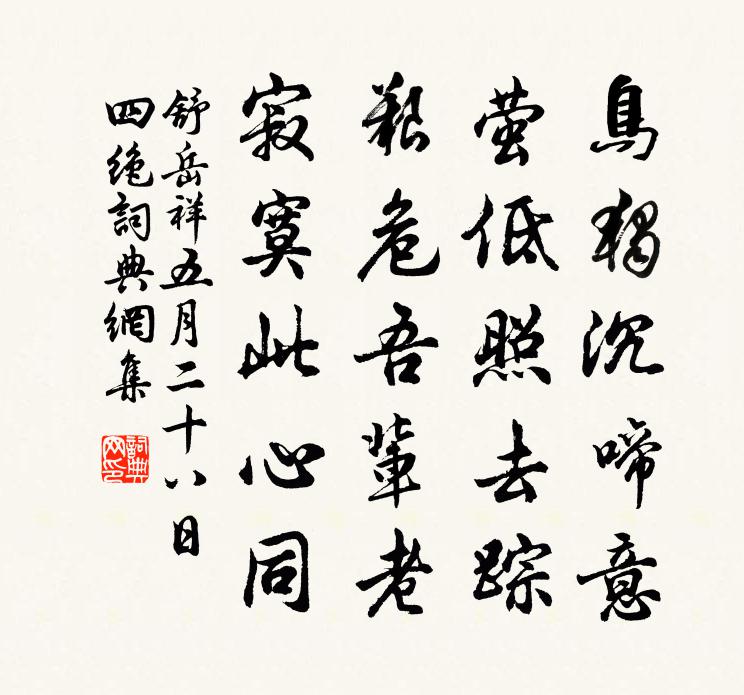 鳥獨沉啼意
萤低照去踪
艱危吾輩老
寂寞此心同
舒岳祥五月二十八日
四絶詞典網集
詞典网印